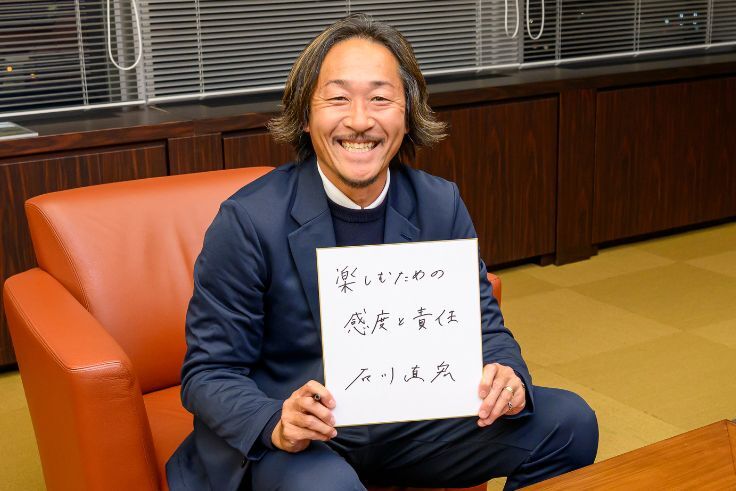 楽しむための
感度と責任
石川直宏